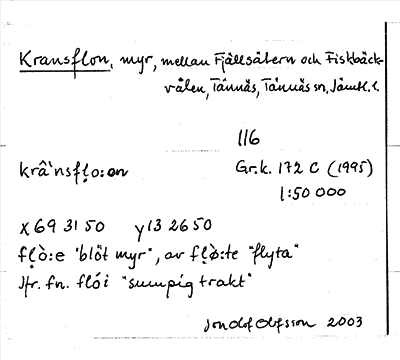 Kransflon, myr, mellan Fjällsätern och Fiskbäck-
vålen, Tännäs, Tännäs sn, Jämtl. l.
116
krâ`nsfḷo:ən Gr.k. 172 C (1995)
1:50 000
x 69 31 50 y 13 26 50
fḷò:e "blöt myr", av fḷø̀:te "flyta"
Jfr. fn. flói "sumpig trakt"
Jon Olof Olofsson 2003